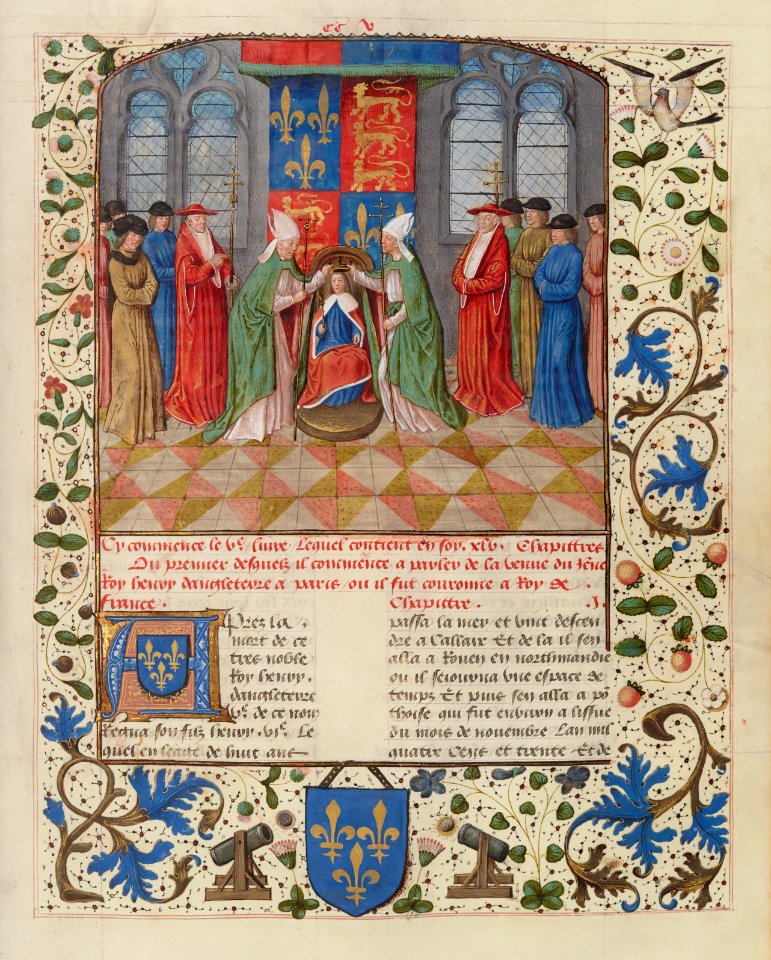 cc v
Cy commence le Ve liure, Lequel contient en soy. xlv. Chapittres
Ou premier desquelz il commence a parler de la venue du Ieue
Roy henry dangleterre a paris ou il fut couronne a Roy de
France. Chapittre. .I.
Aprez la
mort de ce
tres noble
Roy henry.
dangleterre
Ve. de ce nom
Regna son filz henry. VIe. Le
quel en leage de huit ans
passa la mer et vint descen
dre a Callaix Et de la il sen
alla a Rouen en northmandie
ou il seiourna vne espace de
temps Et puis sen alla a po
thoise qui fut enuiron a lissue
du mois de nouembre Lan mil
quatre Cens et trente Et de